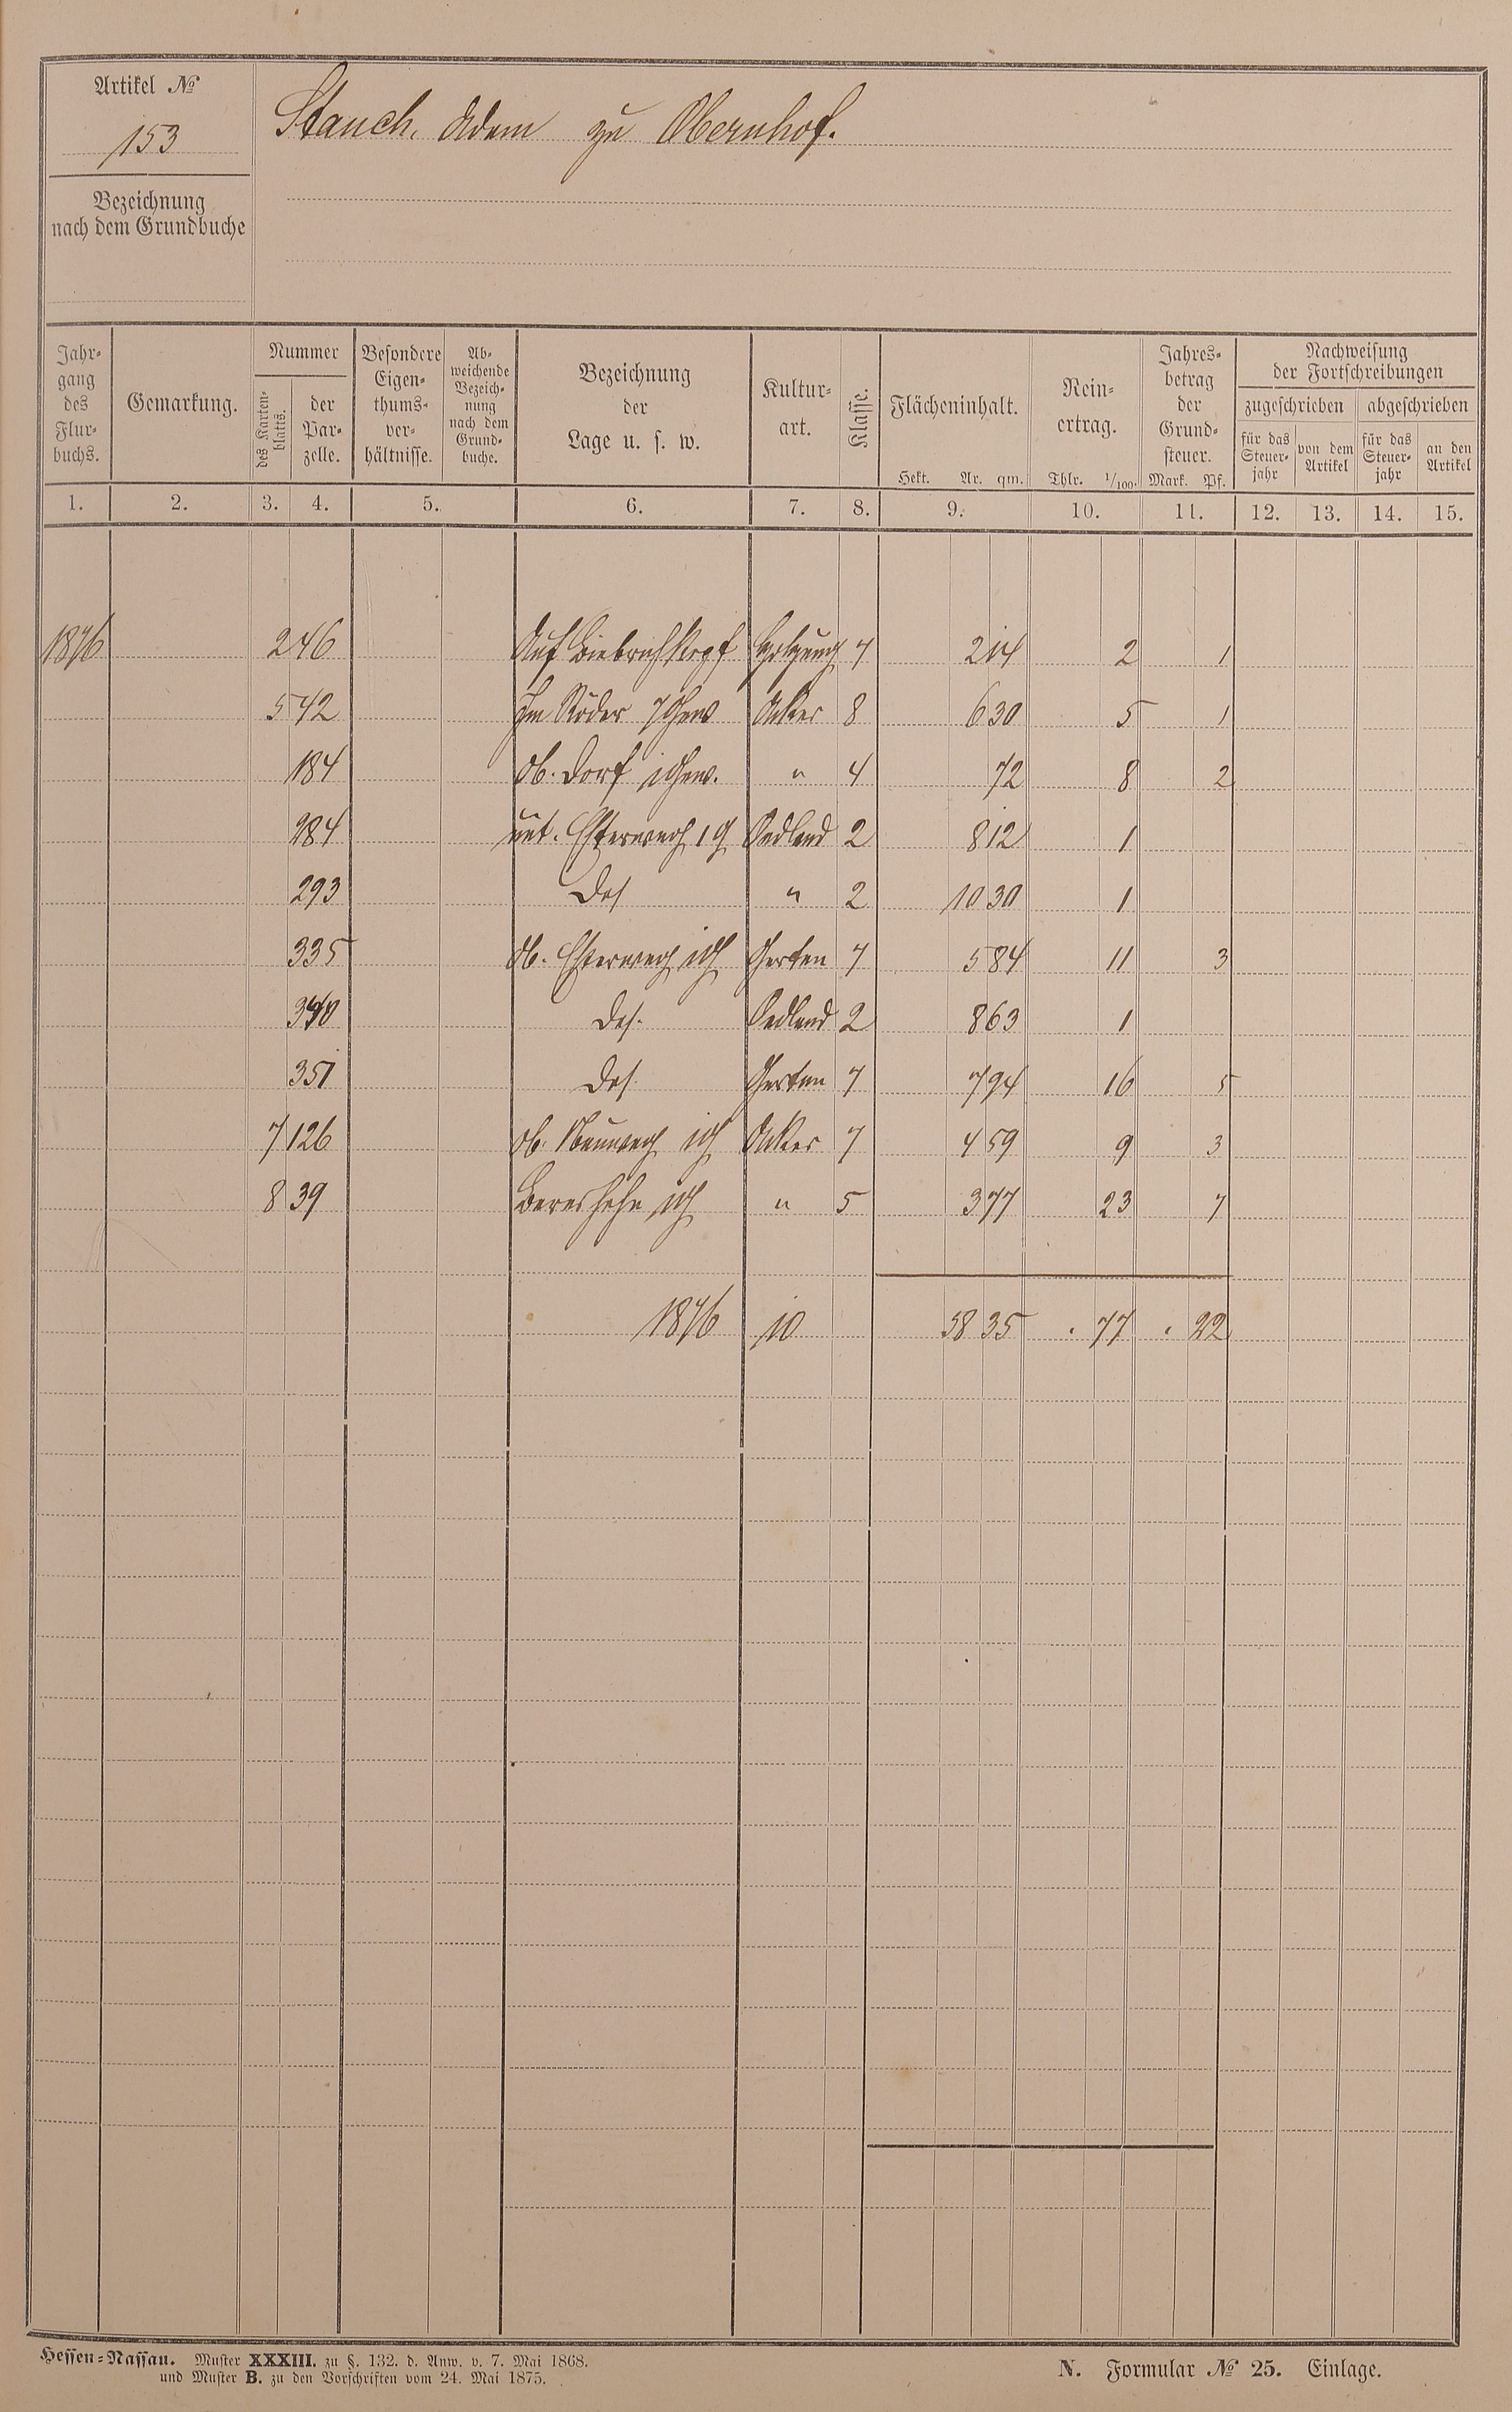 Artikel №
153
Stauch, Adam zu Obernhof.
Bezeichnung
nach dem Grundbuche
Jahr-
gang
des
Flur-
buchs.
Gemarkung.
Nummer
des Karten-
blatts.
der
Par-
zelle.
Besondere
Eigen-
thums-
ver-
hältnisse.
Ab-
weichende
Bezeich-
nung
nach dem
Grund-
buche.
Bezeichnung
der
Lage u. s. w.
Kultur-
art.
Klasse.
Flächeninhalt.
Hekt. Ar. qm.
Rein-
ertrag.
Thlr. 1/100.
Jahres-
betrag
der
Grund-
steuer.
Mark. Pf.
Nachweisung
der Fortschreibungen
zugeschrieben abgeschrieben
für das
Steuer-
jahr
von dem
Artikel
für das
Steuer-
jahr
an den
Artikel
1. 2. 3. 4. 5. 6. 7. 8. 9. 10. 11. 12. 13. 14. 15.
1876 2 46 Auf 7 2 14 2 1
5 42 Im Röder Acker 8 6 30 5 1
184 Ob. Dorf " 4 72 8 2
284 unt. Oedland 2 8 12 1
293 Das " 2 10 30 1
335 Ob. Garten 7 5 84 11 3
340 Das. Oedland 2 8 63 1
351 Das. Garten 7 7 94 16 5
7 126 Ob. Acker 7 4 59 9 3
8 39 " 5 3 77 23 7
1876 10 58 35 . 77 . 22
Hessen-Nassau. Muster XXXIII. zu §. 132. d. Anw. v. 7. Mai 1868.
und Muster B. zu den Vorschriften vom 24. Mai 1875.
N. Formular № 25. Einlage.